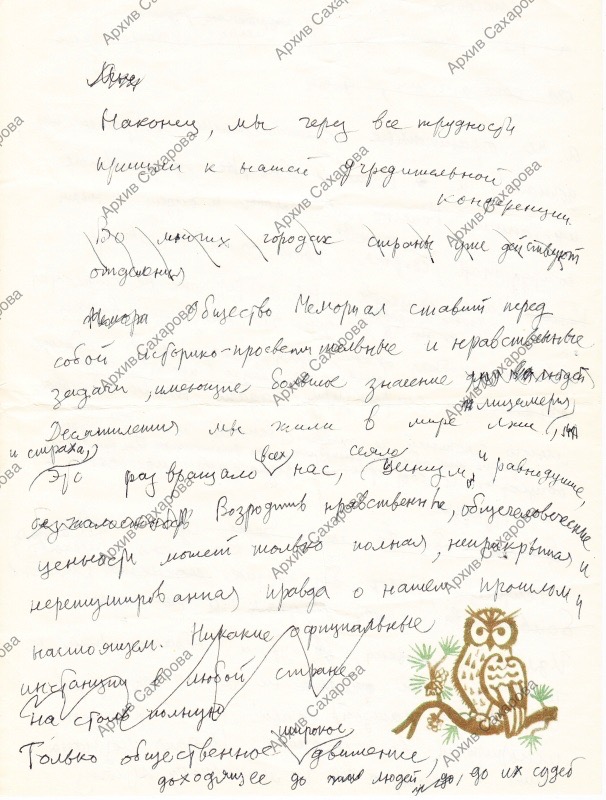 Наконец, мы через все трудности
пришли к нашей учредительной
конференции.
Во многих городах страны уже действуют
отделения
Общество Мемориал ставит перед
собой историко-просветительные и нравственные
задачи, имеющие большое значение
Десятилетия мы жили в мире лжи, лицемерия
и страха,
Это развращало всех нас, сеяло цинизм и равнодушие,
безжалостность Возродить нравственные, общечеловеческие
ценности может только полная, неприкрытая и
неретушированная правда о нашем прошлом и
настоящем. Никакие официальные
инстанции в любой стране
на столь полную
Только общественное широкое движение,
доходящее до людей, до их судеб
Архив Сахарова